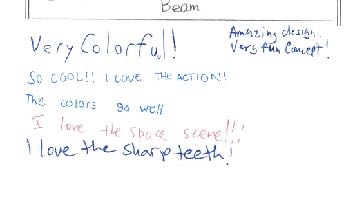 Beam
Very Colorful!
Amazing design.
Very fun concept!
SO COOL!! I LOVE THE ACTION!!
The colors go well
I love the space scene!!!
I love the sharp teeth!